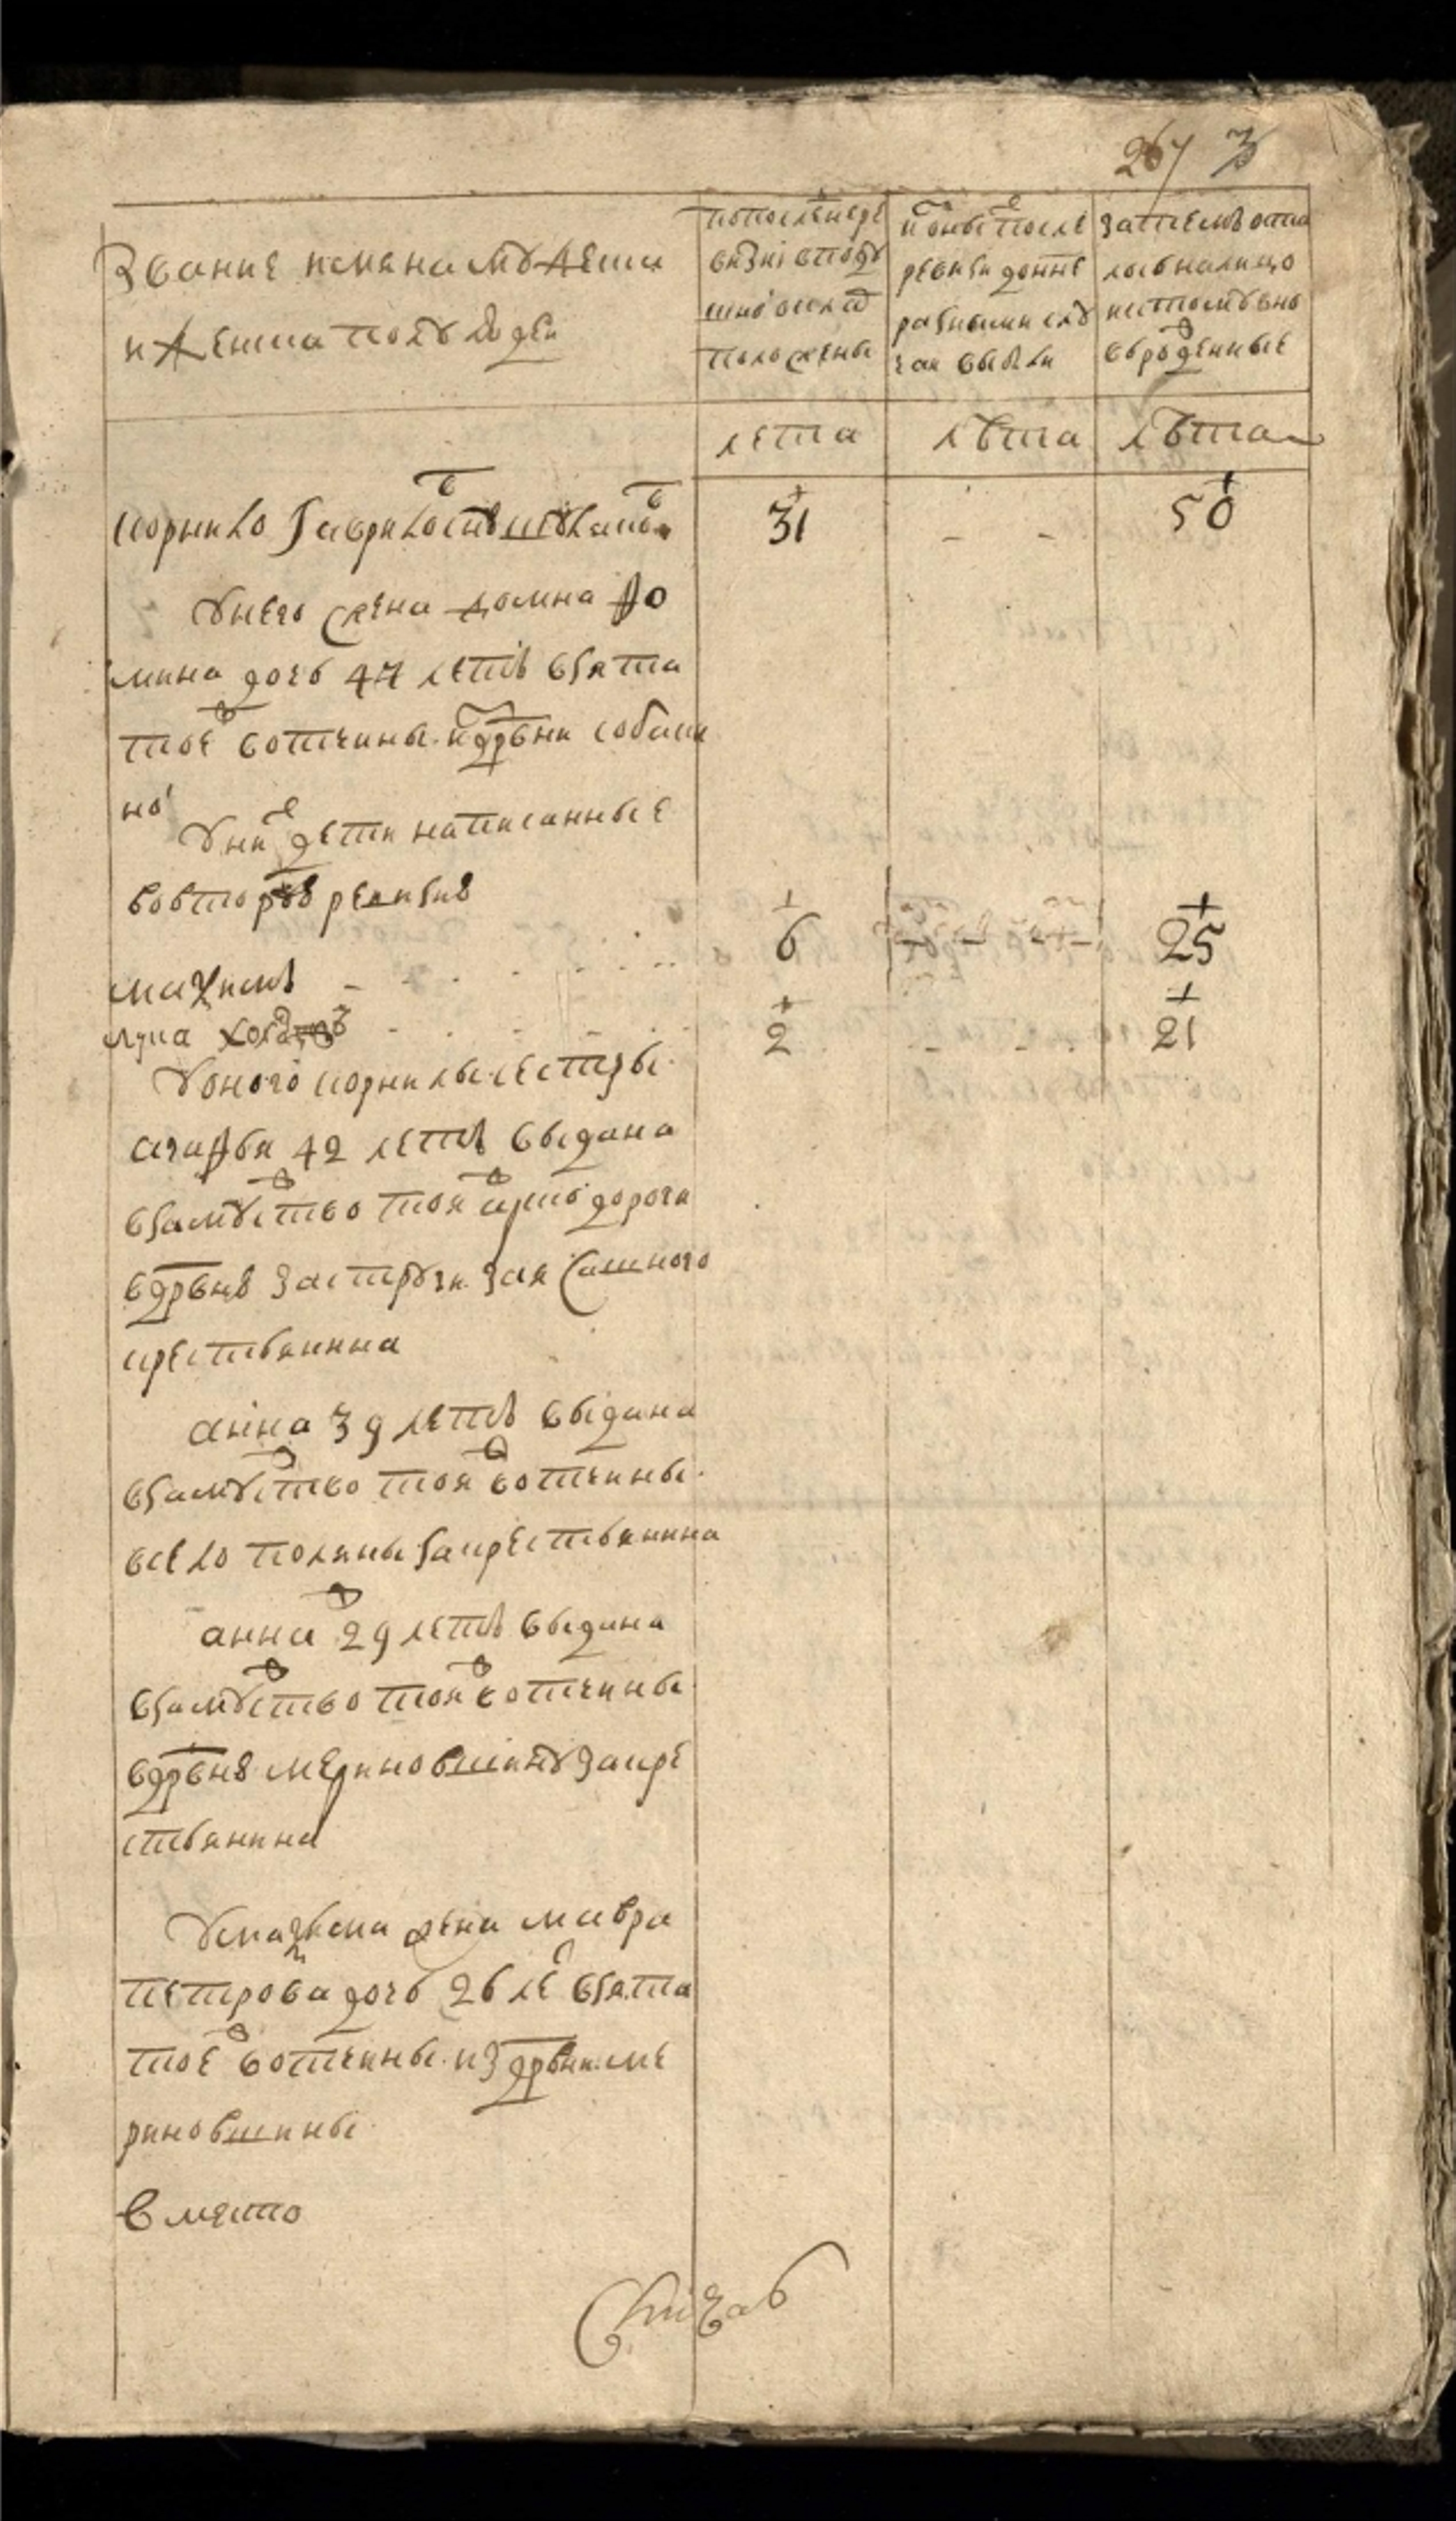 267
Звание имяна мужеска
и женска полу людеи
попоследнеи ре
визиі вподу
шнои окладъ
положены
Изоныхъ после
ревизи доине
разными слу
чаи выбыли
затемъ оста
лось налицо
исповъ вно
врожденные
лета лѣта лѣта
Корнило Гавриловъ сынъ 31 - - 50
Унего жена домна фо
мина дочь 47 летъ взята
тоеж вотчины издрвни собаки
нои
Уних дети написанные
вовторую ревизию
маѯимъ - 6 - - - - 25
лука холостъ - 2 - - - 21
Уоного корнилы сестры
агафья 42 летъ выдана
взамужство тояж арскои дороги
вдрвню заструги заясашного
крестьянина
анна 39 летъ выдана
взамужство тояж вотчины
всело поляны закрестьянина
аннаж 29 летъ выдана
взамужство тояж вотчины
вдрвню мериновшину закре
стьянина
Умаѯима жена мавра
петрова дочь 26 ле взята
тоеж вотчины издрвни ме
риновшины
Вместо